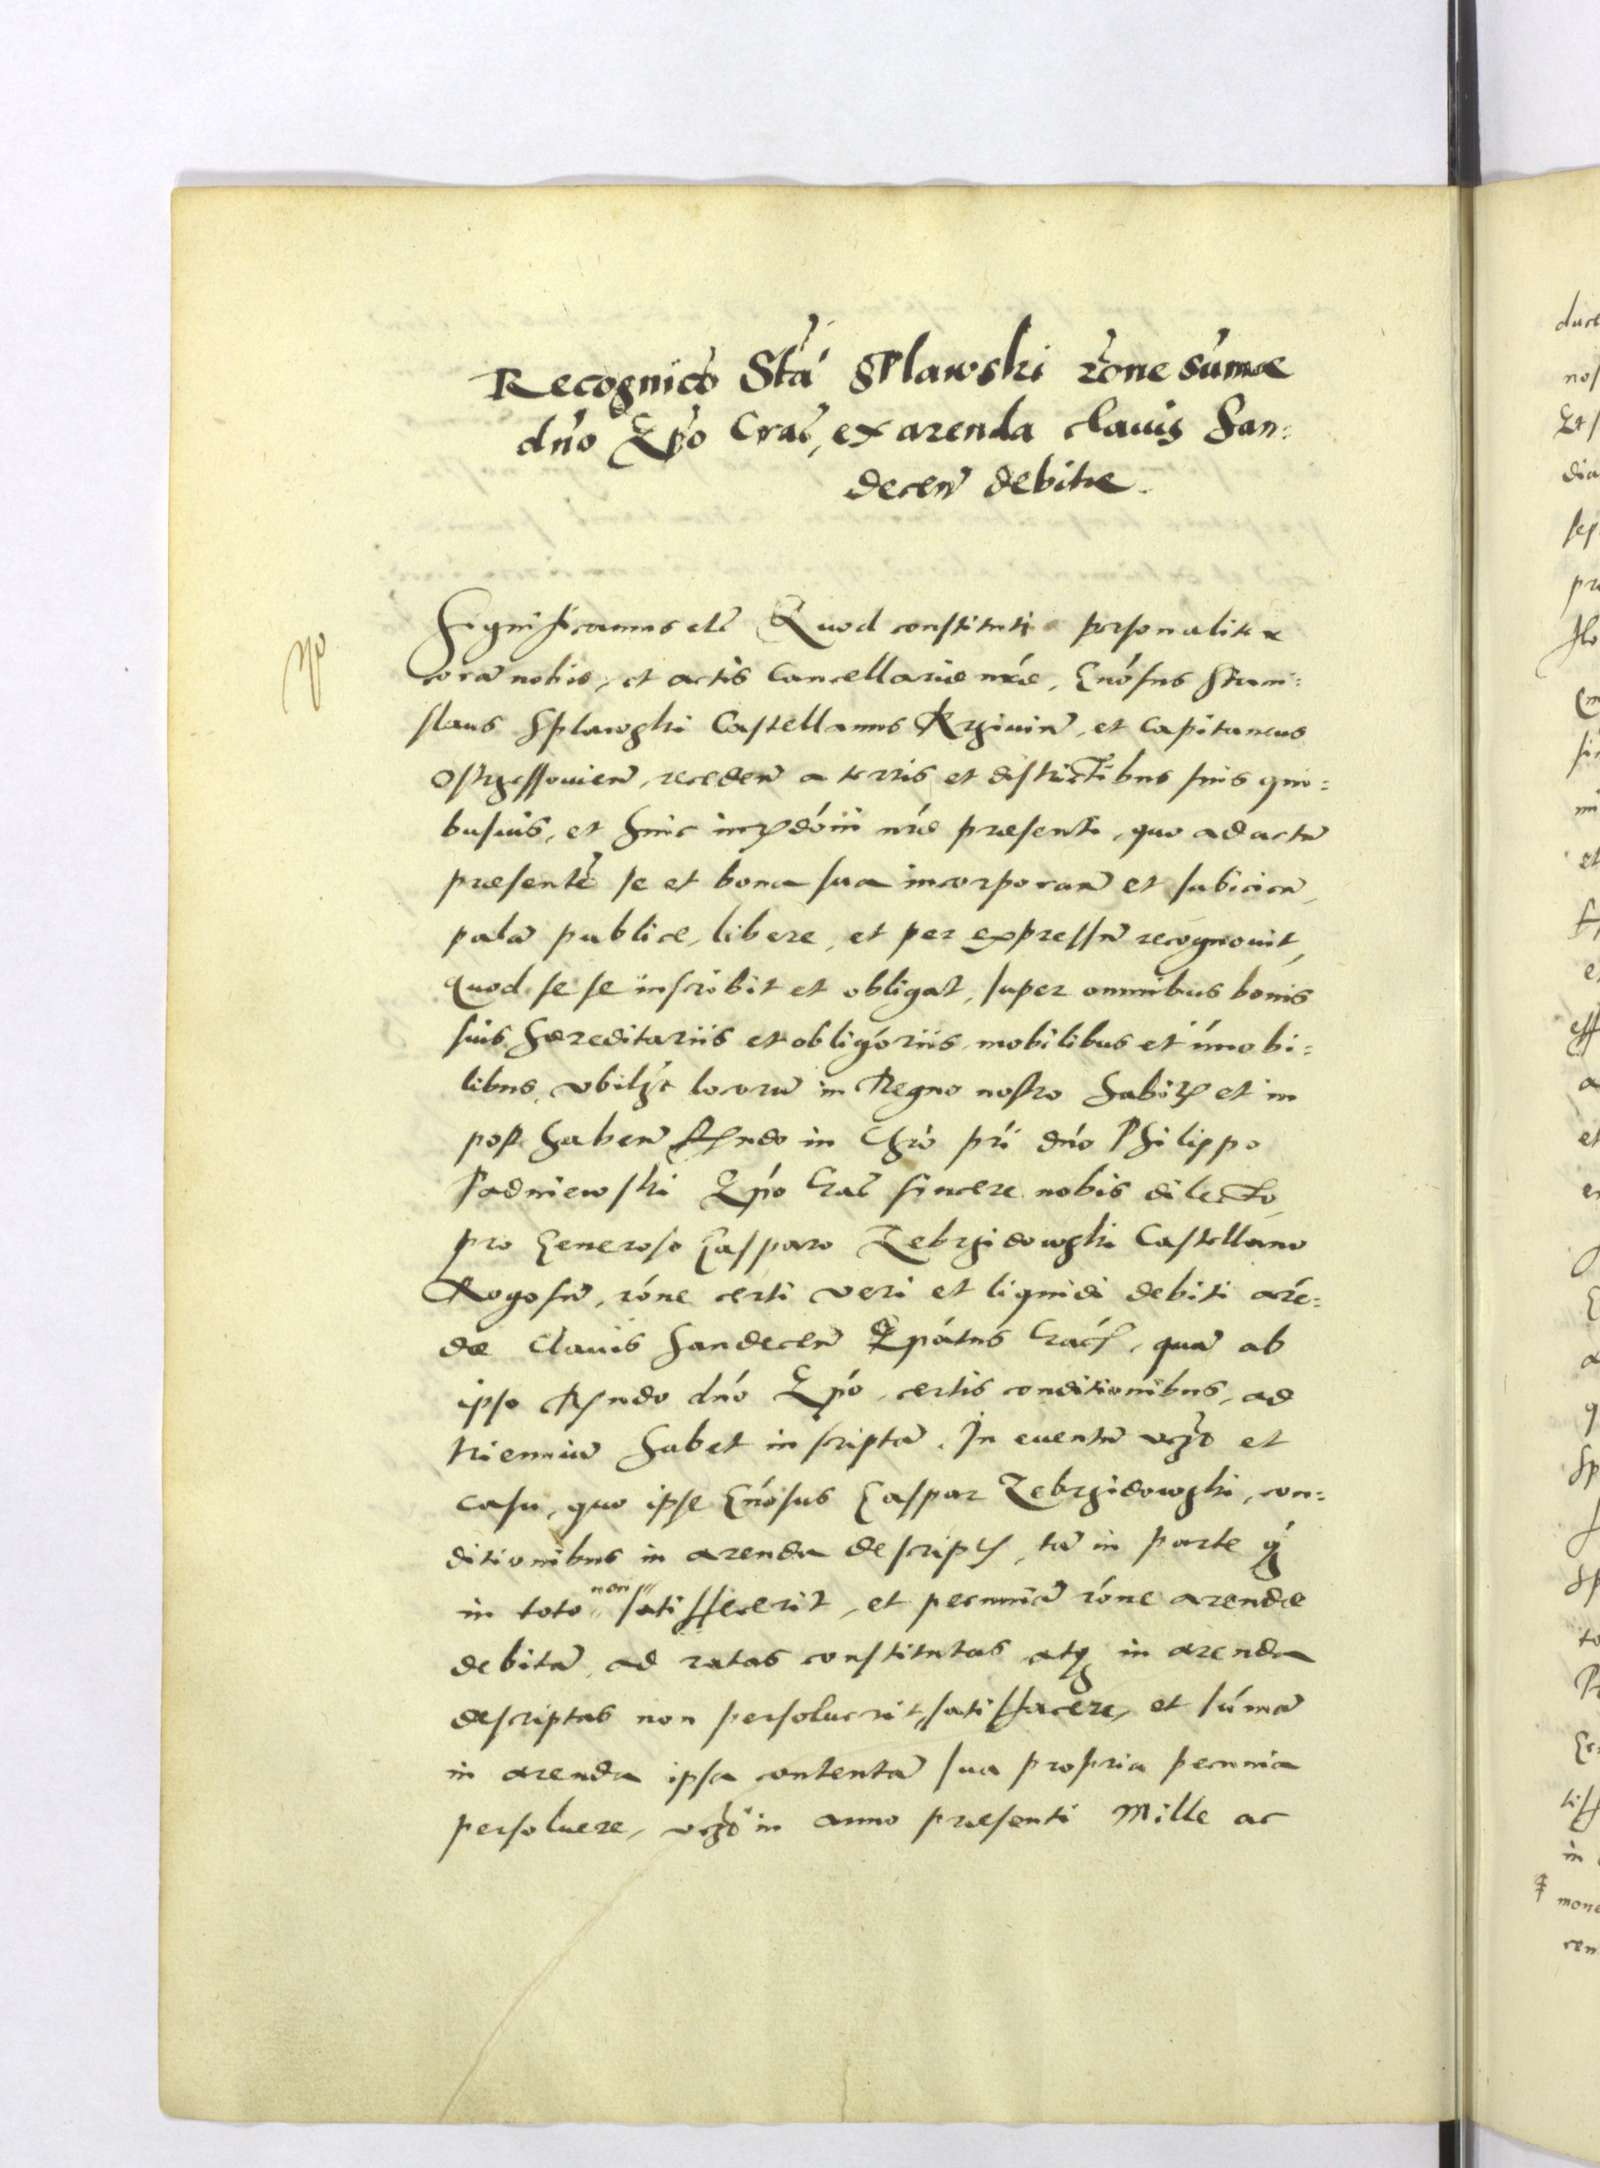 Recognico Sta Splawski rone sumæ
dno Epo Crac, ex arenda clauis San:
decen debitæ.
Significamus etc Quod constituti personaliter
cora nobis, et actis Cancellariæ nræ, Gnosus Stani:
slaus Splawski Castellanus Krzivin, et Capitaneus
Ostrzessouien, receden a terris et districtibus suis qui:
busuis, et huic inqdonii nræ præsenti, quo ad actu
præsente se et bona sua incorporan et subicien,
pala publice, libere, et per expressu recognouit,
quod se se inscribit et obligat, super omnibus bonis
suis hæreditariis et obligoriis, mobilibus et imobi:
libus, vbilzt locoru in Regno nostro habitis et in
post haben Rndo in Chro pri dno Philippo
Padniewski Epo Crac sincere nobis dilecto,
pro Generoso Gasparo Zebrzidowski Castellano
Rogosn, rone certi veri et liquidi debiti are:
dæ Clauis Sandecen Epatus Crac, qua ab
ipso Rndo dno Epo, certis conditionibus, ad
trienniu habet inscripta. In euentu vero et
casu, quo ipse Gnosus Gaspar Zebrzidowski, con:
ditionibus in arenda descriptis, ta in parte q
in toto non satisfecerit, et pecunia rone arendæ
debita, ad ratas constitutas atq in arenda
descriptas non persoluerit, satisfacere, et suma
in arenda ipsa contenta sua propria pecunia
persoluere, vero in anno præsenti Mille ac